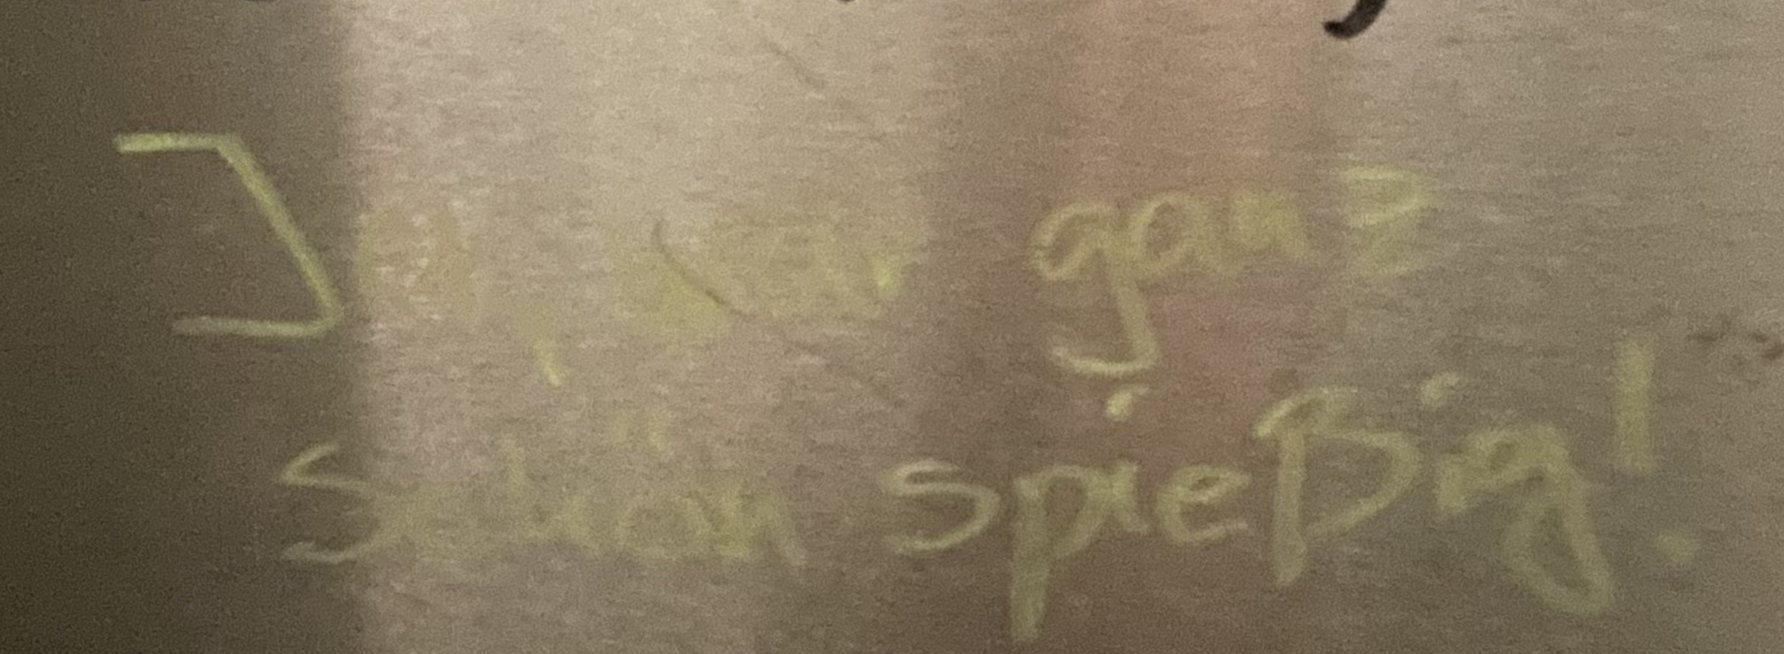 Ja, ganz
schön spießig!